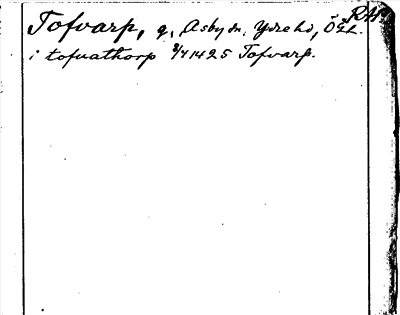 Tofvarp, g, Asby sn, Ydre hd, Ögl.
RAP
i tofuathorp 8/4 1425 Tofvarp.